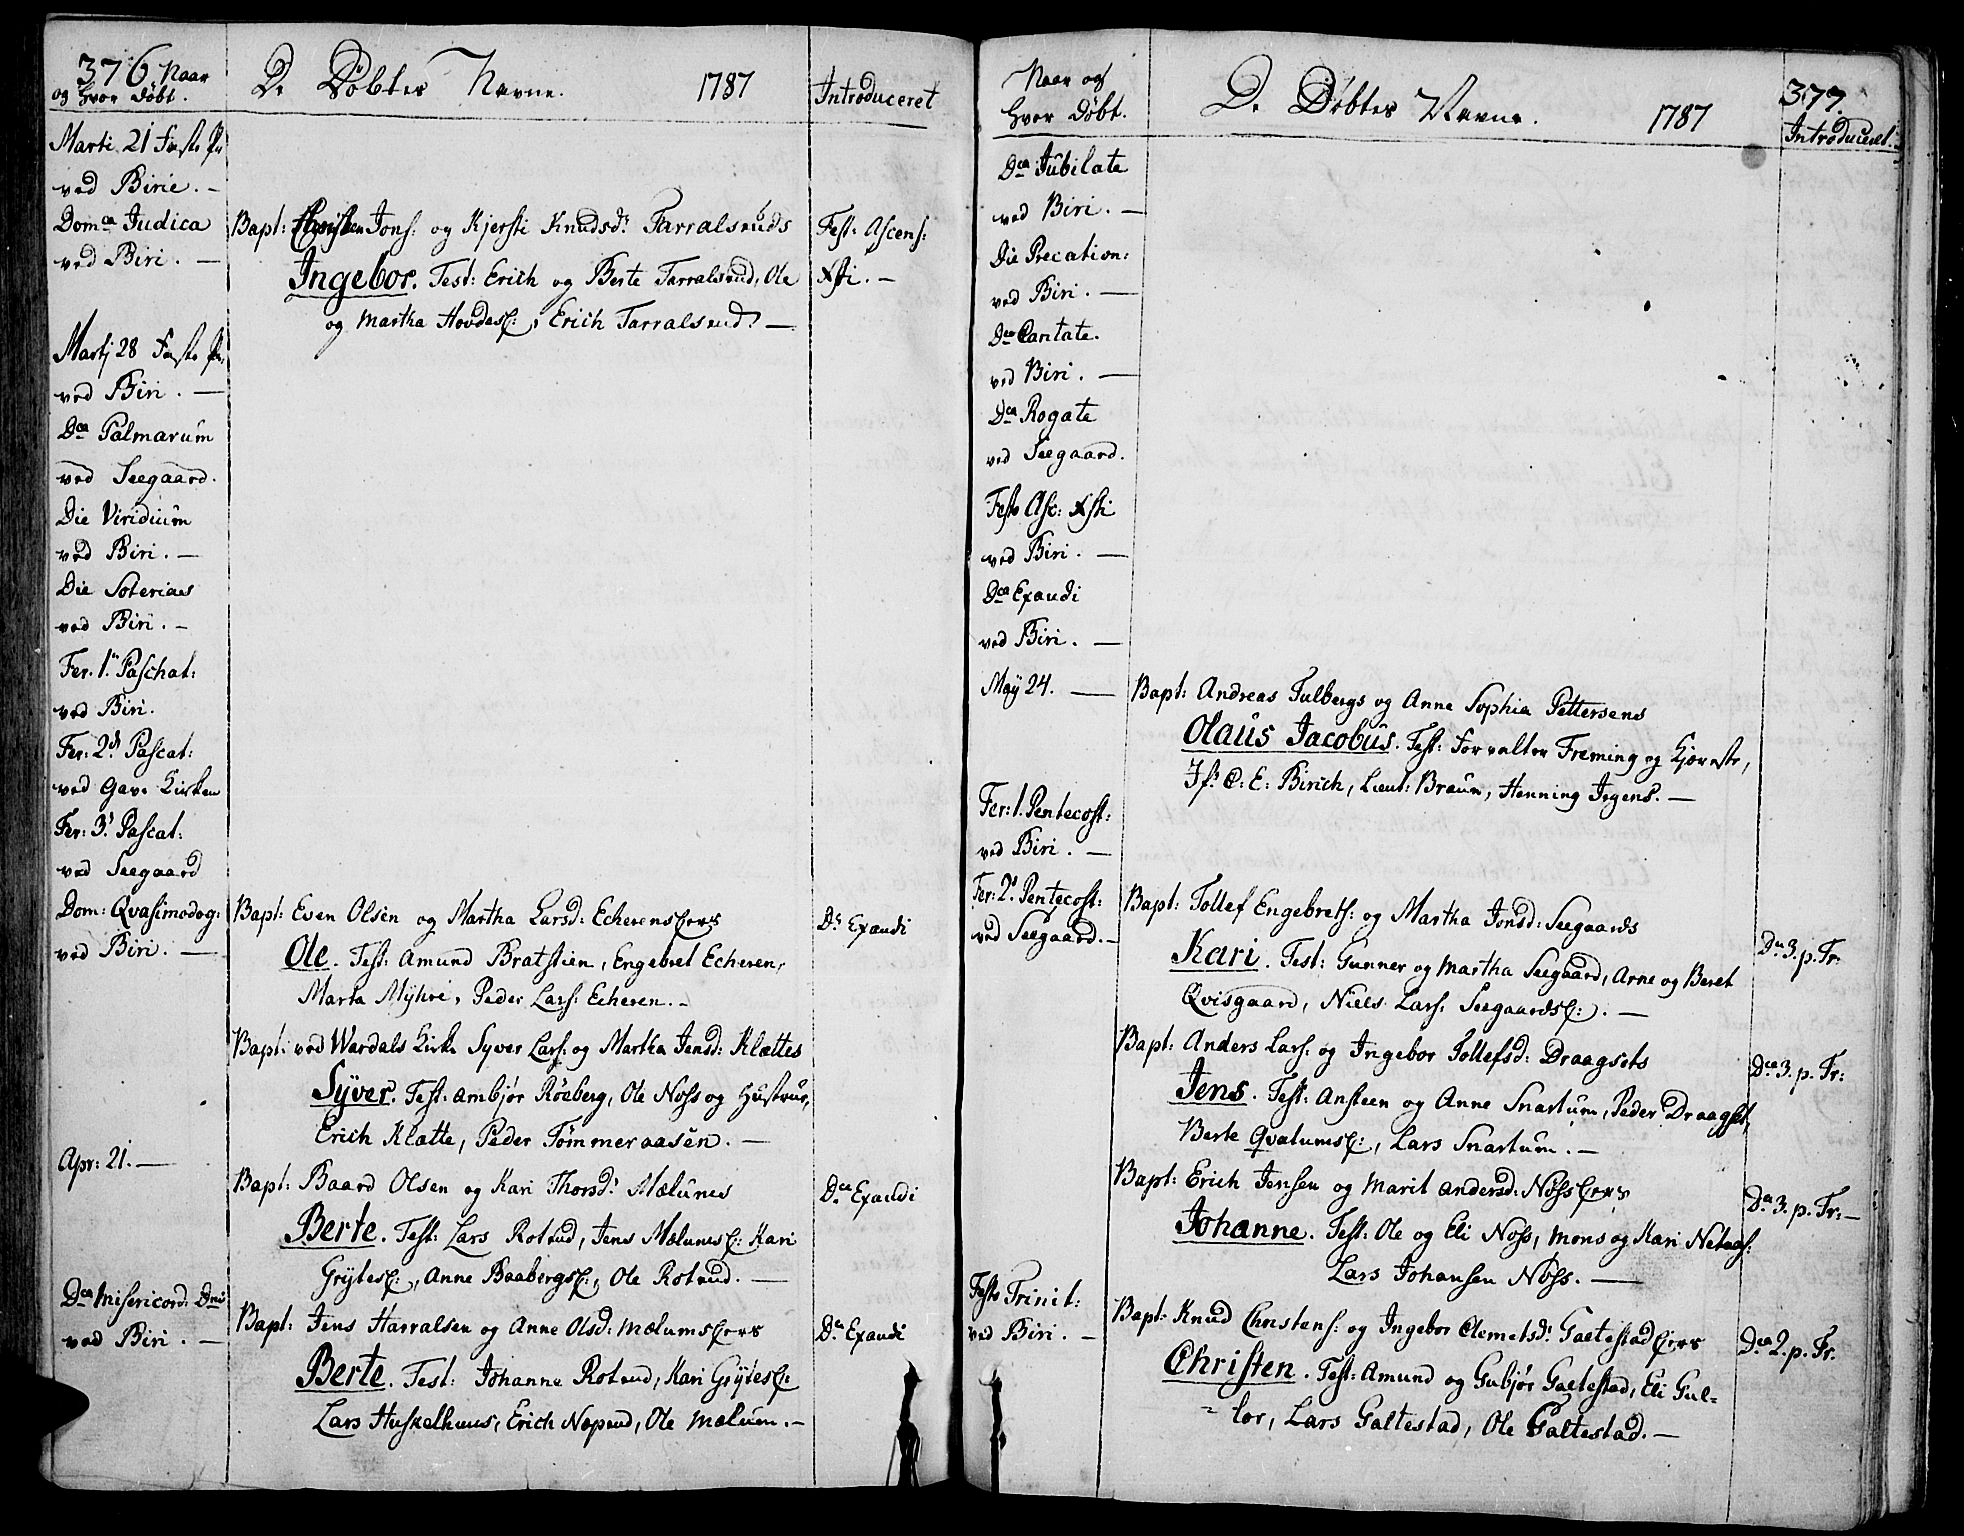 376. Naar
og hvor Døbt.
De Døbtes Navne. 1787
Introduceret
Marti 21 Faste Pr
ved Birie. -
Domca Judica
ved Biri. -
Bapt: Christen Jons: og Kjersti Knudsd: Farralsruds
Ingebor. Test: Erich og Berte Farralsrud, Ole
og Martha Hovdes, Erich Farralsrud -
Fest: Ascens:
Xsti. -
Martj 28 Faste Pr:
ved Biri. -
Dca Palmarum
ved Seegaard.
Die Viridium
ved Biri. -
Die Soteriaes
ved Biri. -
Fer. 1. Paschat:
ved Biri.
Fer: 2d Pascat:
ved Gave Kirken
Fer: 3. Pascat:
ved Seegaard
Dom: Qvasimodog:
ved Biri. -
Bapt: Even Olsen og Martha Larsd: Echerens
Ole. Test: Amund Bratstien, Engebret Echeren,
Marta Myhre, Peder Lars: Echeren. -
Da Exaudi
Bapt: ved Wardals Kirke Syver Lars: og Martha Jensd: Klættes
Syver. Test: Ambjør Röeberg, Ole Noss og Hustrue,
Erich Klætte, Peder Tömmeraasen. -
Apr: 21. -
Bapt: Baard Olsen og Kari Thorsd: Mælunes
Berte. Test: Lars Rotrud, Jens Mælums: Kari
Grytes:, Anne Baabergs:, Ole Rotrud. -
Dca Exaudi
Dca Misericord: Dni
ved Biri. -
Bapt: Jens Harralsen og Anne Olsd: Mælums
Berte. Test: Johanne Rotrud, Kari Grytes:
Lars Huskelhuus, Erich Næprud, Ole Mælum. -
Da Exaudi
Naar og
hvor Døbt.
De Døbtes Navne. 1787
377.
Introduceret.
Dca Jubilate
ved Biri. -
Die Precation:
ved Biri. -
Dca Cantate.
ved Biri. -
Dca Rogate
ved Seegaard.
Festo Asc: Xsti
ved Biri. -
Dca Exaudi
ved Biri. -
Maÿ 24. -
Bapt: Andreas Fulbergs og Anne Sophia Pettersens
Olaus Jacobus. Test: Forvalter Freming og Kjæreste,
Jfr C: E: Birich, Lieut: Braun, Henning Irgens. -
Fer: 1. Pentecost:
ved Biri. -
Fer: 2. Pentecost:
ved Seegaard. -
Bapt: Tollef Engebrets: og Martha Jonsd: Seegaards
Kari. Test: Gunner og Martha Seegaard, Arne og Beret
Qvisgaard, Niels Lars: Seegaards:. -
Da 3. p. Tr:
Bapt: Anders Lars: og Ingebor Tollefsd: Draagsets
Jens. Test: Ansteen og Anne Snartum, Peder Draagset,
Berte Qvatums:, Lars Snartum. -
Dca 3. p. Tr:
Bapt: Erich Jensen og Marit Andersd: Noss
Johanne. Test: Ole og Eli Noss, Mons og Kari
Lars Johansen Noss. -
Da 3. p. Tr: -
Festo Trinit:
ved Biri. -
Bapt: Knud Christens: og Ingebor Clemetsd: Galtestad
Christen. Test: Amund og Gubjør Galtestad, Eli Gul-
lor, Lars Galtestad, Ole Galtestad. -
Dca 2. p. Tr.